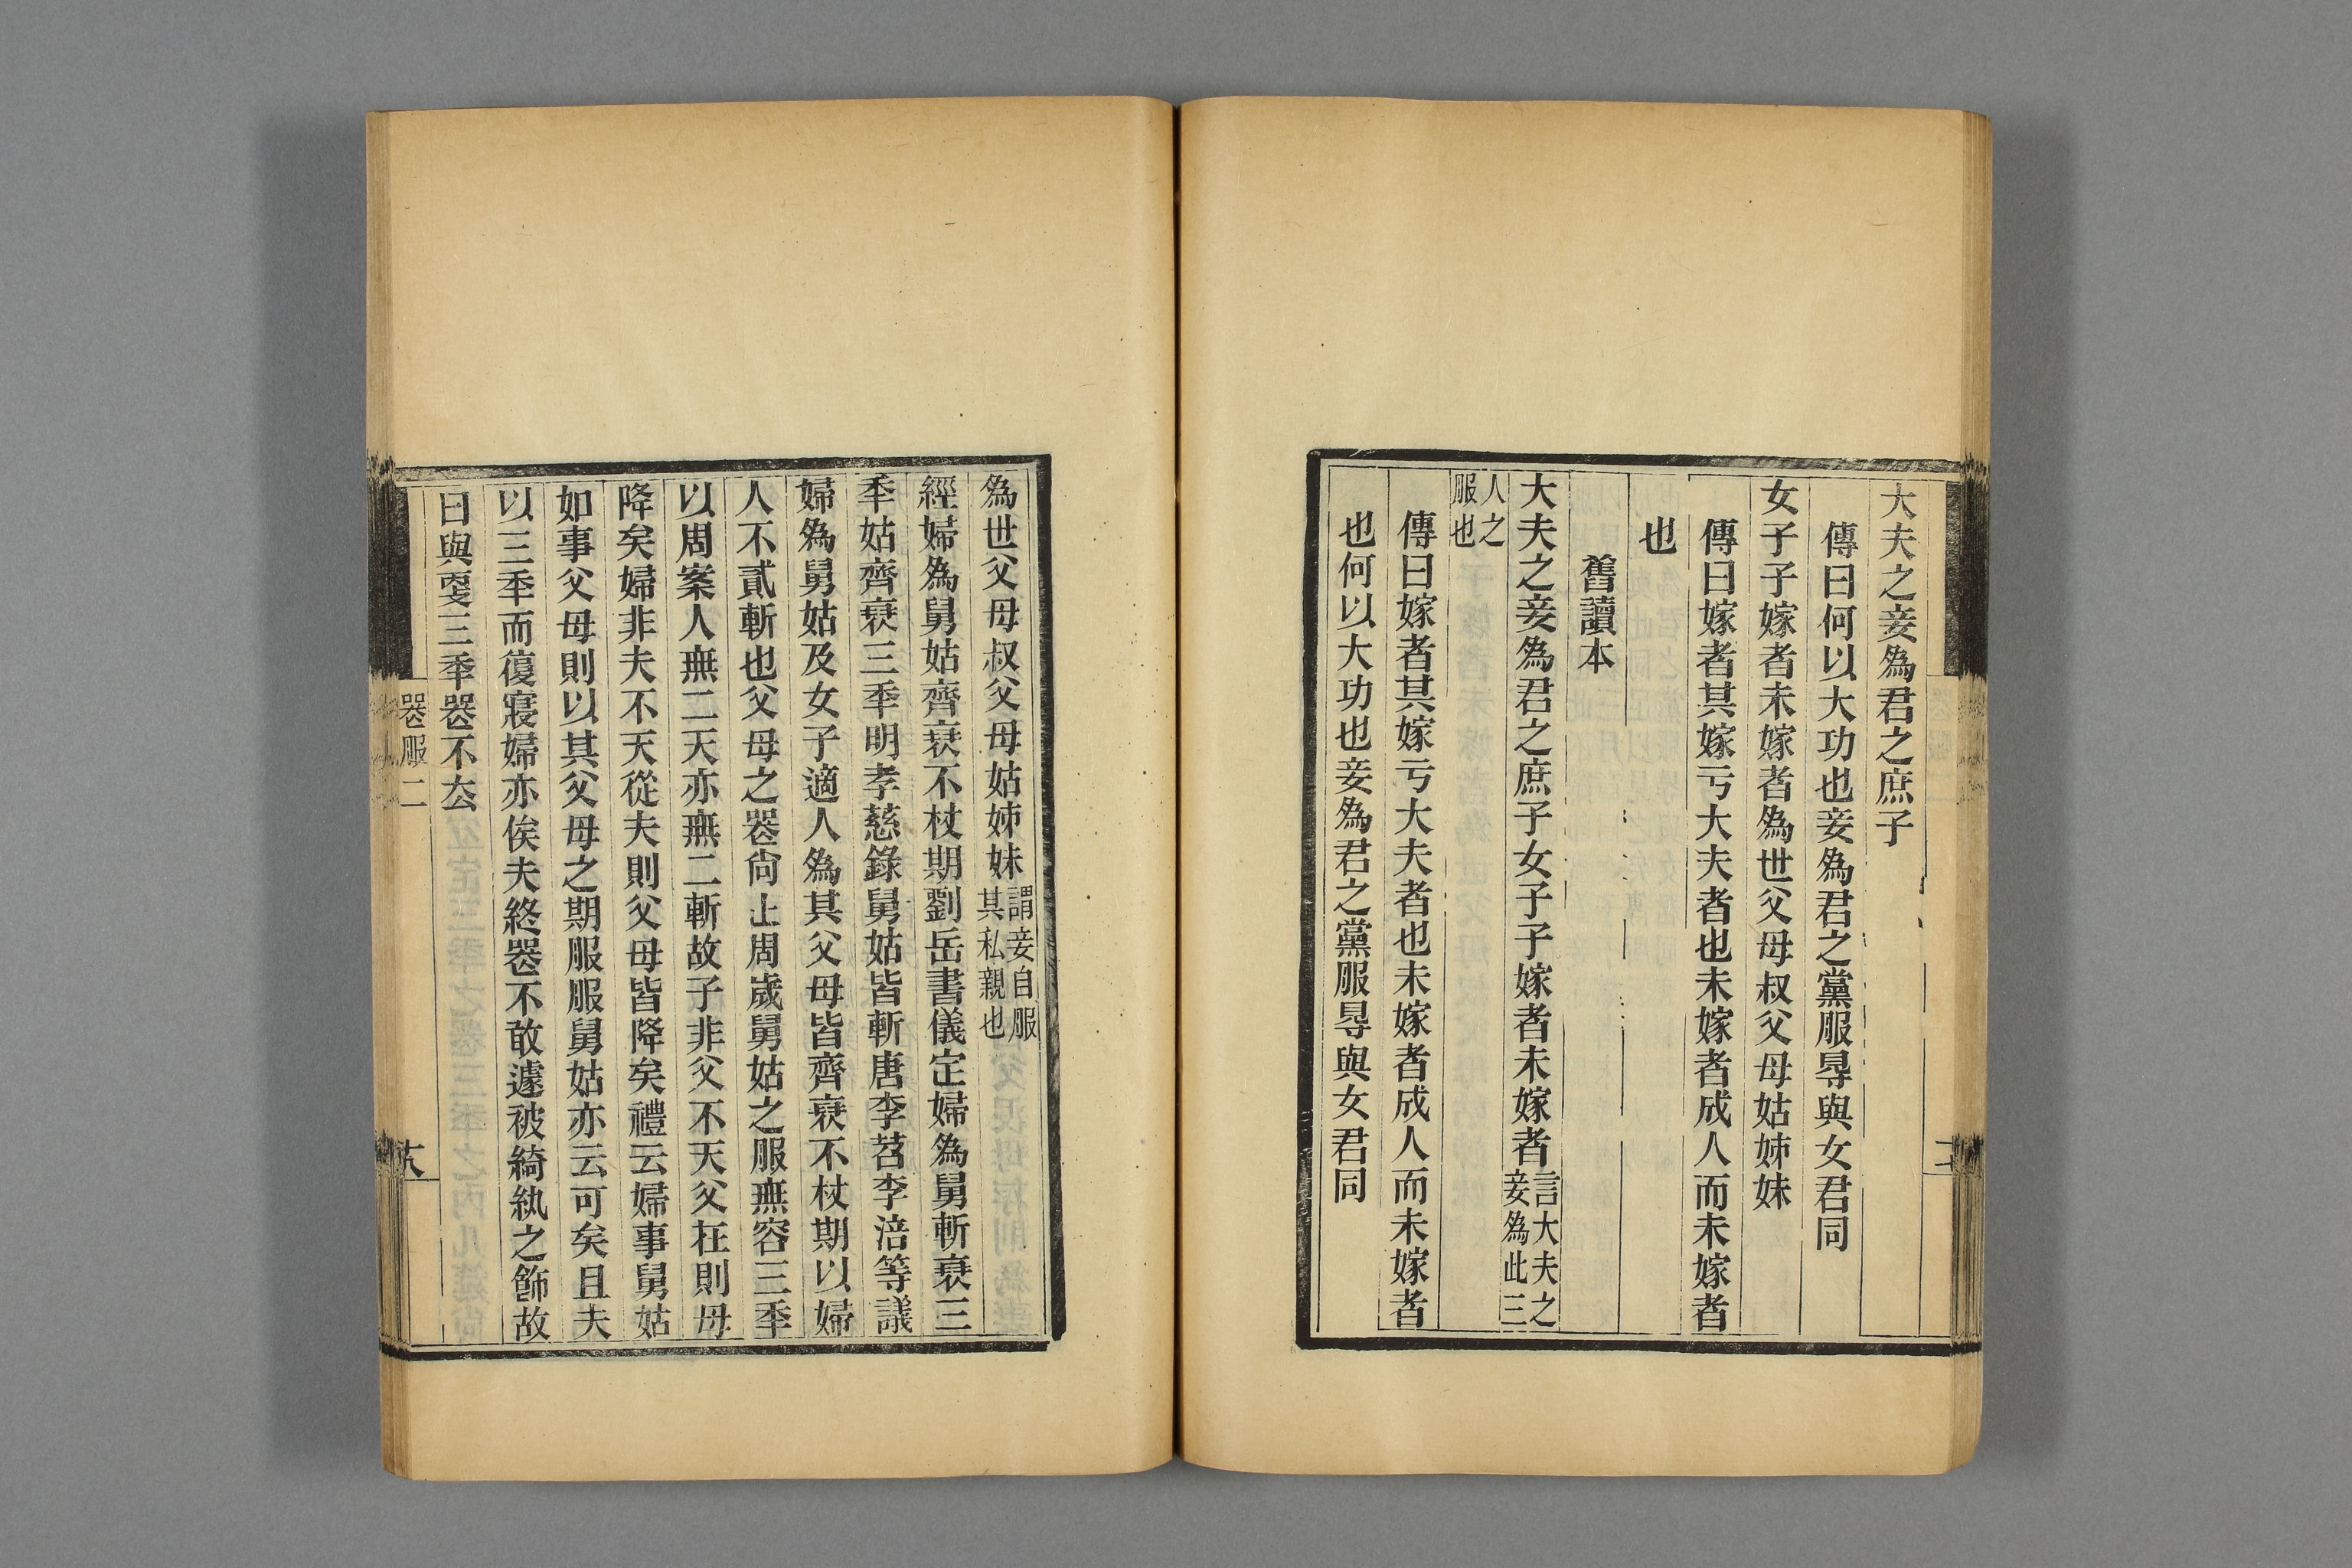 大夫之妾爲君之庶子
傳曰何以大功也妾爲君之黨服㝵與女君同
女子子嫁者未嫁者爲世父母叔父母姑姊妹
傳曰嫁者其嫁亏大夫者也未嫁者成人而未嫁者
也
舊讀本
大夫之妾爲君之庶子女子子嫁者未嫁者言大夫之妾爲此三
人之服也
傳曰嫁者其嫁亏大夫者也未嫁者成人而未嫁者
也何以大功也妾爲君之黨服㝵與女君同
爲世父母叔父母姑姊妹謂妾自服其私親也
經婦爲舅姑齊衰不杖期劉岳書儀定婦爲舅斬衰三
秊姑齊衰三秊明孝慈錄舅姑皆斬唐李苕李涪等議
婦爲舅姑及女子適人爲其父母皆齊衰不杖期以婦
人不貳斬也父母之喪尙止周歲舅姑之服無容三秊
以周案人無二天亦無二斬故子非父不天父在則母
降矣婦非夫不天從夫則父母皆降矣禮云婦事舅姑
如事父母則以其父母之期服服舅姑亦云可矣且夫
以三秊而復寢婦亦俟夫終喪不敢遽被綺紈之飾故
曰與更三秊喪不去
喪服二
十八